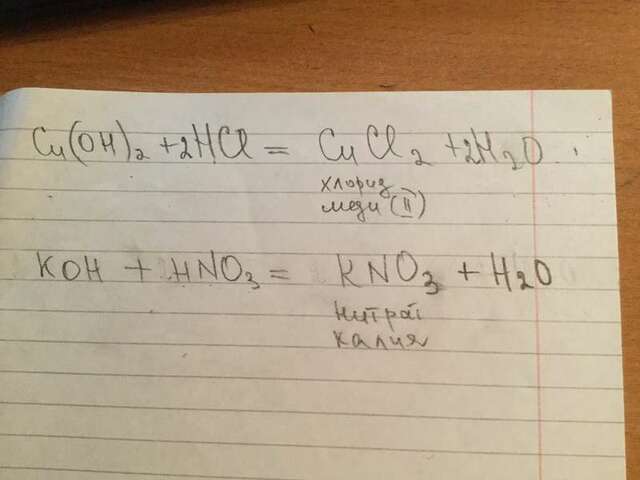 Cu(OH)₂ + 2HCl = CuCl₂ + 2H₂O.
хлорид
меди (II)
KOH + HNO₃ = KNO₃ + H₂O
нитрат
калия